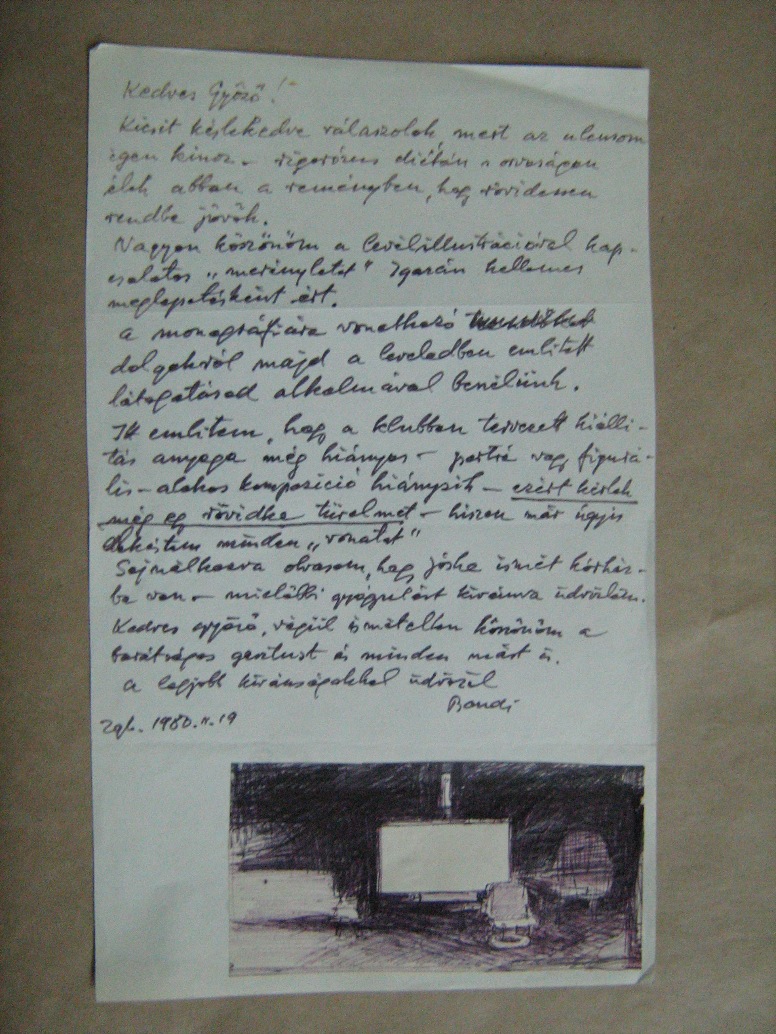 Kedves Győző!
Kicsit késlekedve válaszolok mert az ulcusom
igen kinoz – rigorózus diétán s orvosságon
élek abban a reményben, hogy rövidesen
rendbe jövök.
Nagyon köszönöm a levélillusztrációval kap-
csolatos „merényletet" Igazán kellemes
meglepetésként ért.
A monográfiára vonatkozó
dolgokról majd a leveledben emlitett
látogatásod alkalmával beszélünk.
Itt emlitem, hogy a klubban tervezett kiálli-
tás anyaga még hiányos – portré vagy figurá-
lis – alakos kompozíció hiányzik – ezért kérlek
még egy rövidke türelmet – hiszen már úgyis
lekéstem minden „vonatot"
Sajnálkozva olvasom, hogy Jóska ismét kórház-
ba van – mielőbbi gyógyulást kívánva üdvözlöm.
Kedves Győző, végül ismételten köszönöm a
barátságos gesztust és minden mást is.
A legjobb kívánságokkal üdvözöl
Bandi
Zgb. 1980.II.19